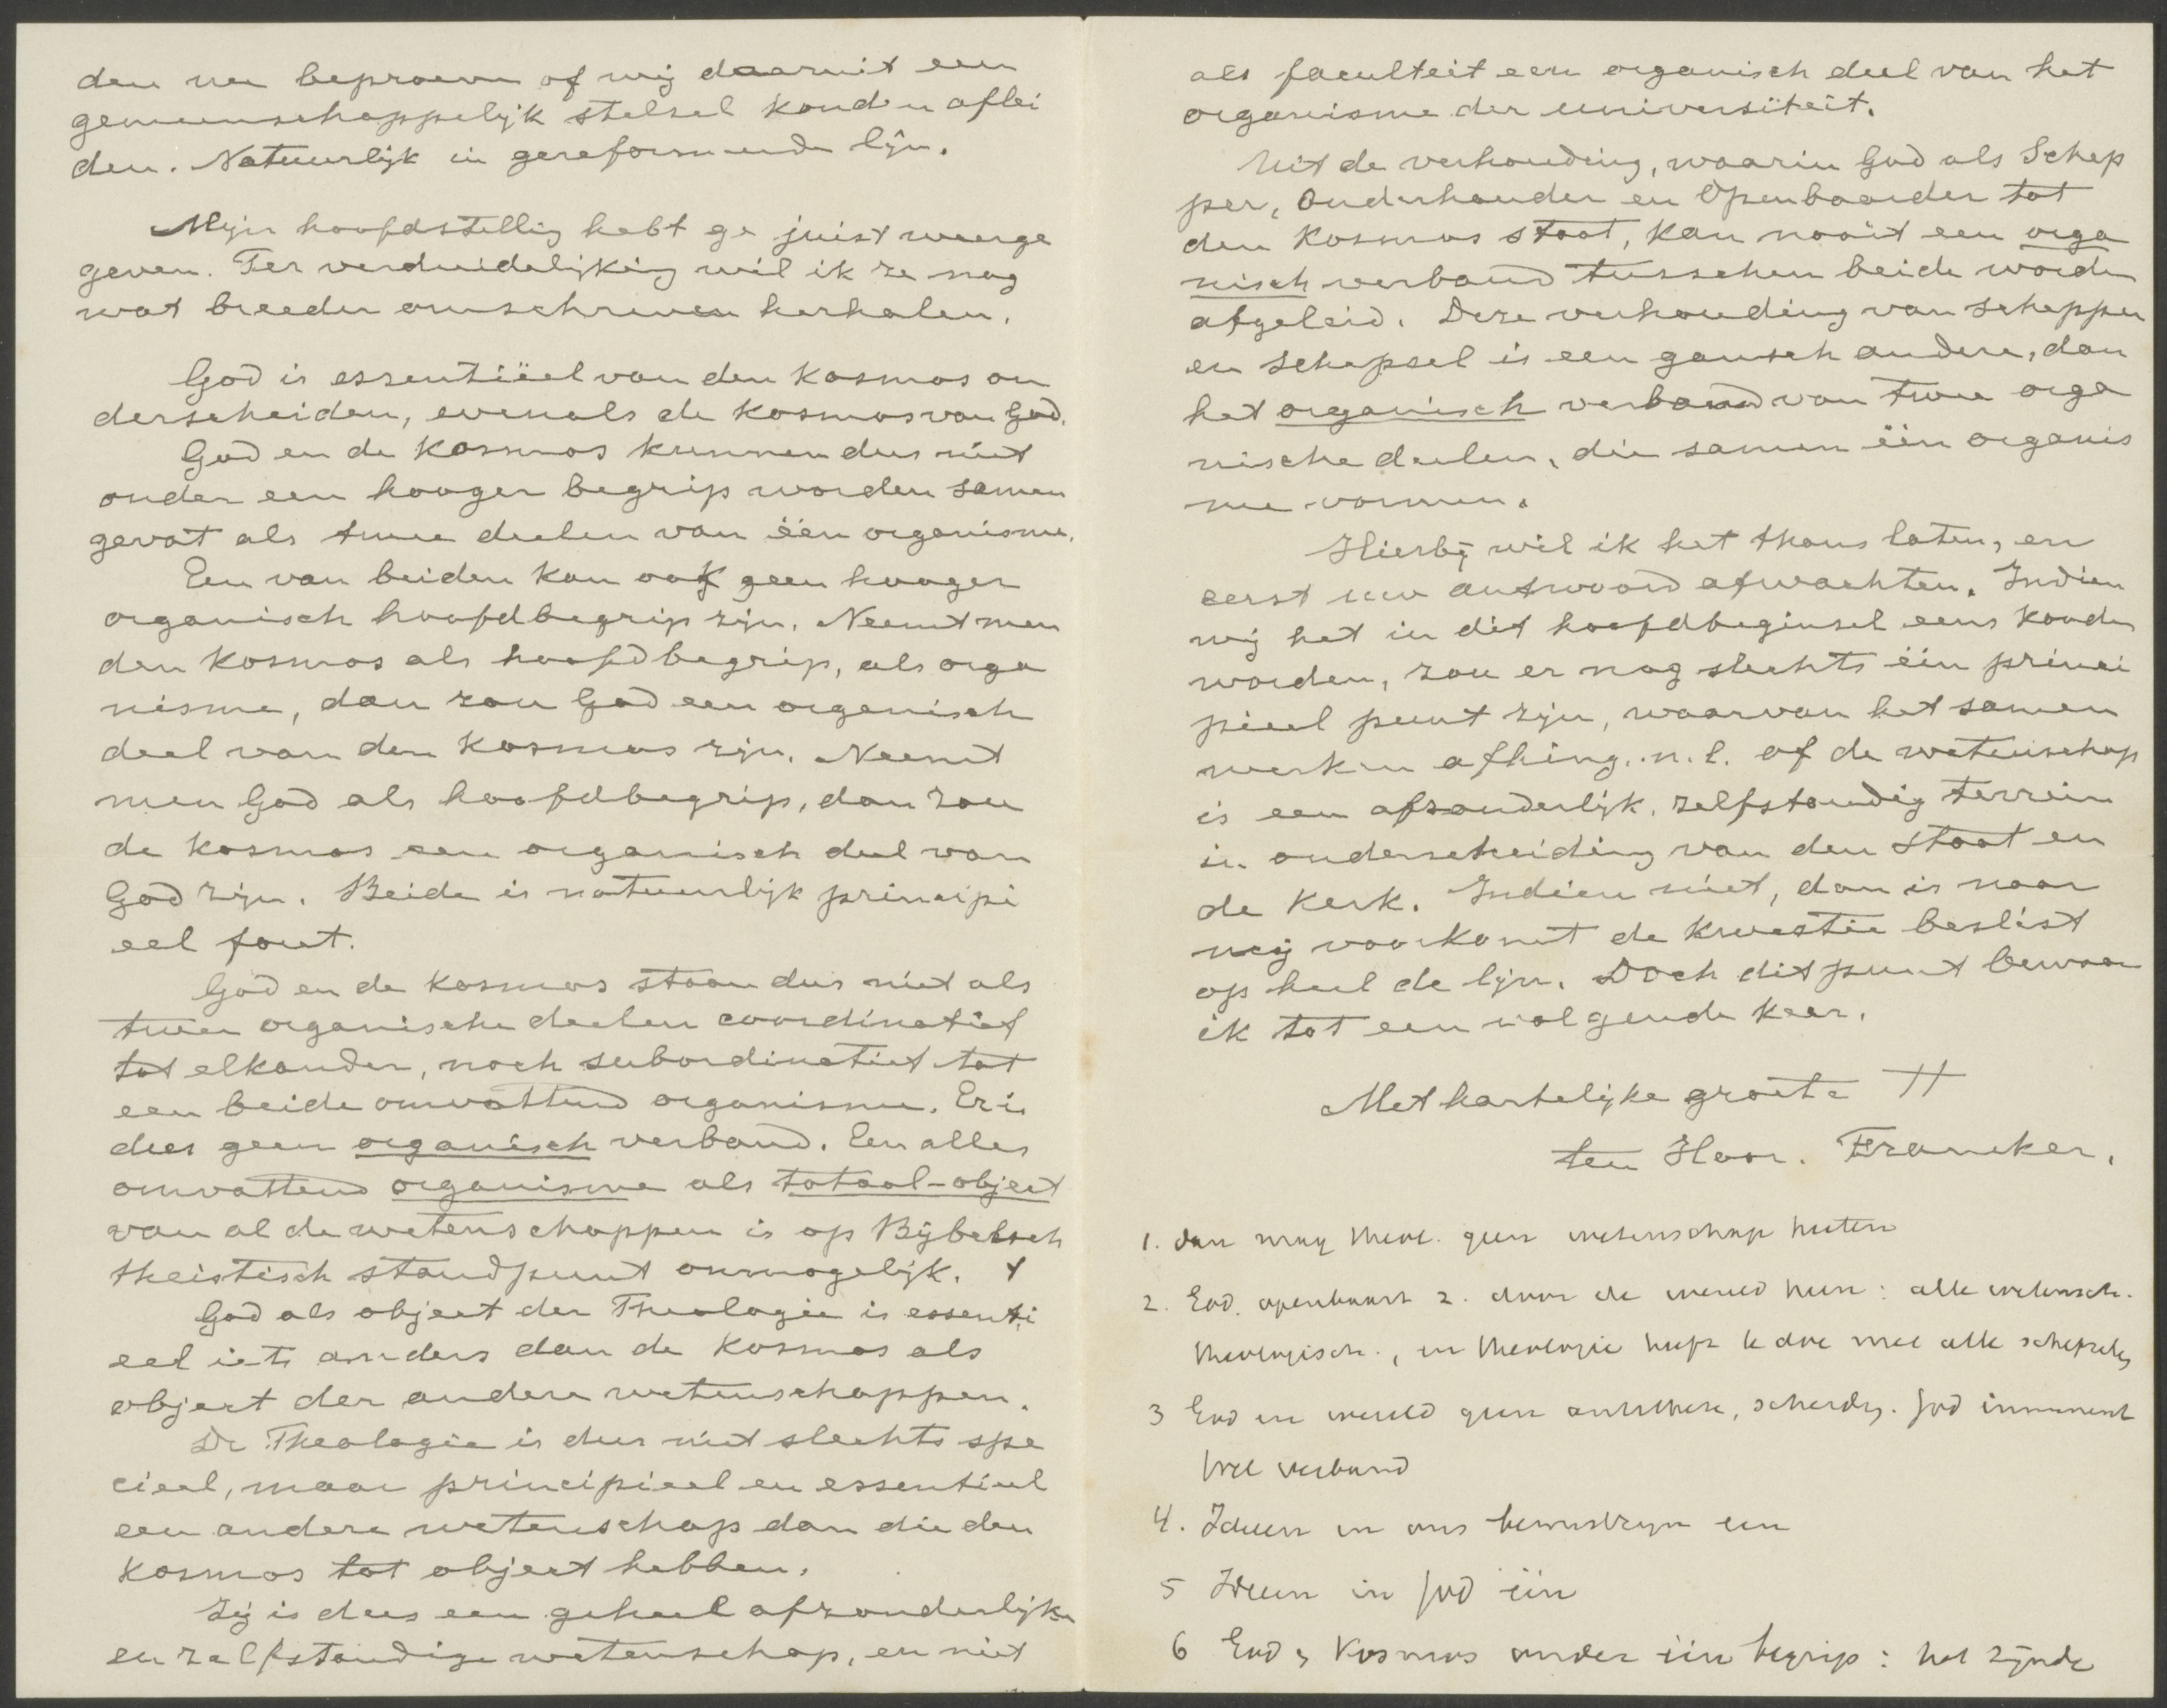 den nu beproeven of wij daaruit een
gemeenschappelijk stelsel konden aflei
den. Natuurlijk in gereformeerde lijn.
Mijn hoofdstelling hebt ge juist weerge
geven. Ter verduidelijking wil ik ze nog
wat breeder omschreven herhalen.
God is essentiëel van den Kosmos on
derscheiden, evenals de Kosmos van God.
God en de Kosmos kunnen dus niet
onder een hooger begrip worden samen
gevat als twee deelen van één organisme.
Een van beiden kan ook geen hooger
organisch hoofdbegrip zijn. Neemt men
den Kosmos als hoofdbegrip, als orga
nisme, dan zou God een organisch
deel van den Kosmos zijn. Neemt
men God als hoofdbegrip, dan zou
de Kosmos een organisch deel van
God zijn. Beide is natuurlijk principi
eel fout.
God en de Kosmos staan dus niet als
twee organische deelen coordinatief
tot elkander, noch subordinatief tot
een beide omvattend organisme. Er is
dus geen organisch verband. Een alles
omvattend organisme als totaal-object
van al de wetenschappen is op Bijbelsch
theistisch standpunt onmogelijk.
God als object der Theologie is essenti
eel iets anders dan de Kosmos als
object der andere wetenschappen.
De Theologie is dus niet slechts spe
cieel, maar principieel en essentieel
een andere wetenschap dan die den
Kosmos tot object hebben.
Zij is dus een geheel afzonderlijke
en zelfstandige wetenschap, en niet
als faculteit een organisch deel van het
organisme der universiteit.
Uit de verhouding, waarin God als Schep
per, Onderhouder en Openbaarder tot
den Kosmos staat, kan nooit een orga
nisch verband tusschen beide worden
afgeleid. Deze verhouding van schepper
en schepsel is een gansch andere, dan
het organisch verband van twee orga
nische deelen, die samen één organis
me vormen.
Hierbij wil ik het thans laten, en
eerst uw antwoord afwachten. Indien
wij het in dit hoofdbeginsel eens konden
worden, zou er nog slechts één princi
pieel punt zijn, waarvan het samen
werken afhing. n.l. of de wetenschap
is een afzonderlijk, zelfstandig terrein
in onderscheiding van den Staat en
de Kerk. Indien niet, dan is naar
mij voorkomt de kwestie beslist
op heel de lijn. Doch dit punt bewaar
ik tot een volgende keer.
Met hartelijke groete TT
ten Hoor. Franeker.
1. dan mag theol. geen wetenschap heeten
2. God openbaart z. door de wereld heen: alle wetensch.
theologisch., en theologie heeft te doe met alle schepsels
3 God en wereld geen antithese, scheidg. God immanent
wel verband
4. Ideeen in ons bewustzijn een
5 Ideeen in God één
6 God & Kosmos onder één begrip: het zijnde